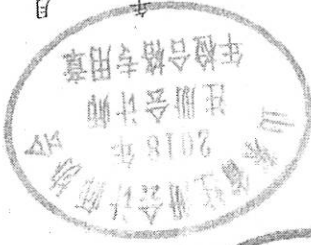 山东省注册会计师协会
2018年
注册会计师
年检合格专用章
年 月